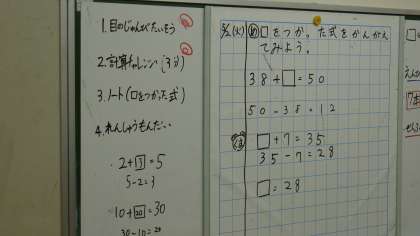 1. 目のじゅんびたいそう
2. 計算チャレンジ(3分)
3. ノート(□をつかった式)
4. れんしゅうもんだい
2+3=5
5-2=3
10+20=30
30-10=20
(火) め □をつかった式をかんがえ
てみよう。
38+□=50
50-38=12
□+7=35
35-7=28
□=28